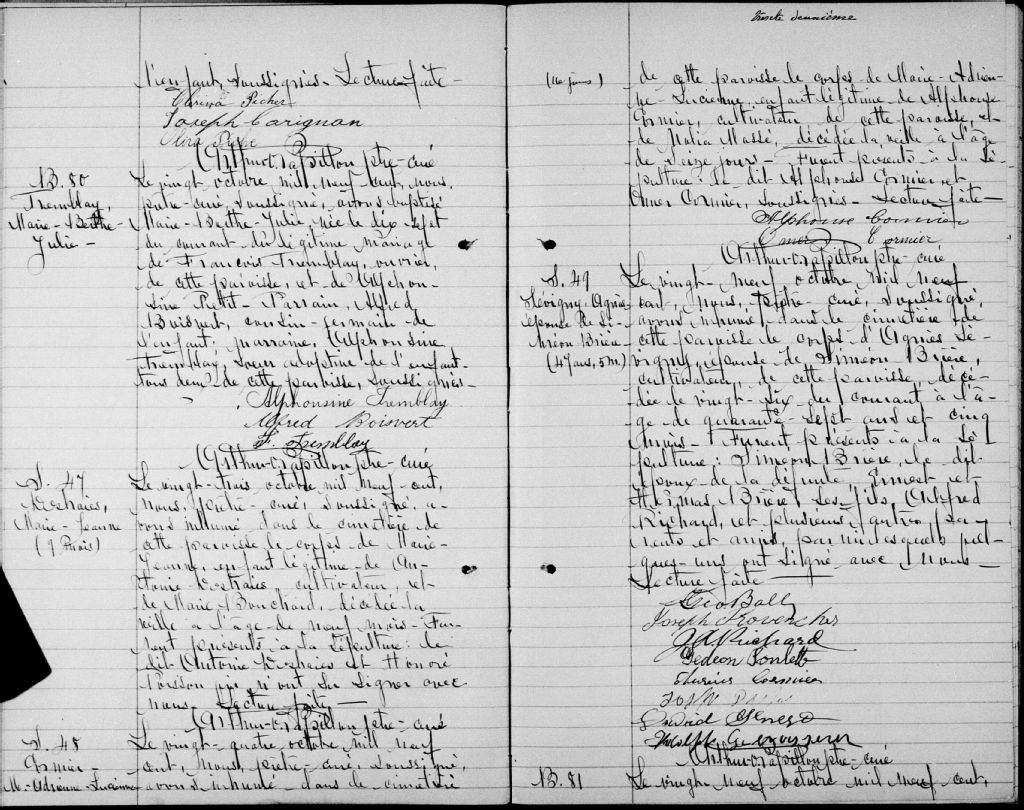 l'enfant, soussignés - Lecture faite -
Clarina Picher
Joseph Carignan
Arthur C. Papillon ptre-curé
B. 80
Tremblay,
Marie-Berthe-
Julie -
Le vingt octobre mil neuf cent, nous,
prêtre-curé, soussigné, avons baptisé
Marie-Berthe-Julie, née le dix-sept
du courant du légitime mariage
de François Tremblay, ouvrier,
de cette paroisse, et de Alphon-
sine Petit - Parrain, Alfred
Boisvert, cousin-germain de
l'enfant; marraine, Alphonsine
Tremblay, soeur adoptive de l'enfant -
tous deux de cette paroisse, soussignés -
Alphonsine Tremblay
Alfred Boisvert
F. Tremblay
Arthur C. Papillon ptre-curé
S. 47
Deshaies,
Marie-Jeanne
(9 mois)
Le vingt-trois octobre mil neuf cent,
nous, prêtre-curé, soussigné, a-
vons inhumé dans le cimetière de
cette paroisse le corps de Marie-
Jeanne, enfant légitime de An-
tonio Deshaies, cultivateur, et
de Marie Bouchard, décédée la
veille à l'âge de neuf mois - Fu-
rent présents à la sépulture: le
dit Antonio Deshaies et Honoré
Poisson qui n'ont su signer avec
nous - Lecture faite -
Arthur C. Papillon ptre-curé
S. 48
Cormier
M.-Adrienne-Lucienne
Le vingt-quatre octobre mil neuf
cent, nous, prêtre-curé, soussigné,
avons inhumé dans le cimetière
trente deuxième
(16 jours)
de cette paroisse le corps de Marie-Adrien-
ne-Lucienne, enfant légitime de Alphonse
Cormier, cultivateur de cette paroisse, et
de Malia Massé, décédée la veille à l'âge
de seize jours - Furent présents à la sé-
pulture: le dit Alphonse Cormier et
Omer Cormier, soussignés - Lecture faite -
Alphonse Cormier
Omer Cormier
Arthur C. Papillon ptre-curé
S. 49
Lévigny, Agnès
épouse de Si-
méon Brière
(47 ans, 5 m.)
Le vingt-neuf octobre mil neuf
cent, nous, prêtre-curé, soussigné,
avons inhumé dans le cimetière de
cette paroisse le corps d'Agnès Lé-
vigny, épouse de Siméon Brière,
cultivateur, de cette paroisse, décé-
dée le vingt-six du courant à l'â-
ge de quarante-sept ans et cinq
mois - Furent présents à la sé-
pulture: Siméon Brière, le dit
époux de la défunte, Ernest et
Thomas Brière ses fils, Alfred
Richard, et plusieurs autres pa-
rents et amis, parmi lesquels quel-
ques-uns ont signé avec nous -
Lecture faite -
Geo Ball
Joseph Provencher
J A Richard
Gédéon
Cormier
David
Adolphe
Arthur C. Papillon ptre-curé
B. 81
Le vingt-neuf octobre mil neuf cent,